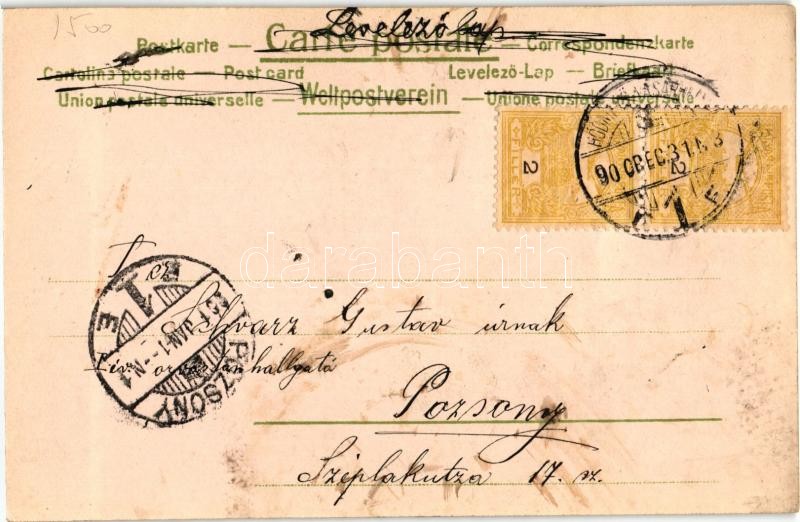 1500
Levelező lap
Postkarte — Carte postale — Correspondenzkarte
Cartolina postale — Post card Levelező-Lap — Briefkaart
Union postale universelle — Weltpostverein — Unione postale universale
2 2
900 DEC 31 N 3
F
T. cz.
Schvarz Gustav úrnak
orvostanhallgató
Pozsony
Széplakutza 17. sz.
POZSONY
1
E
JAN 1
darabanth